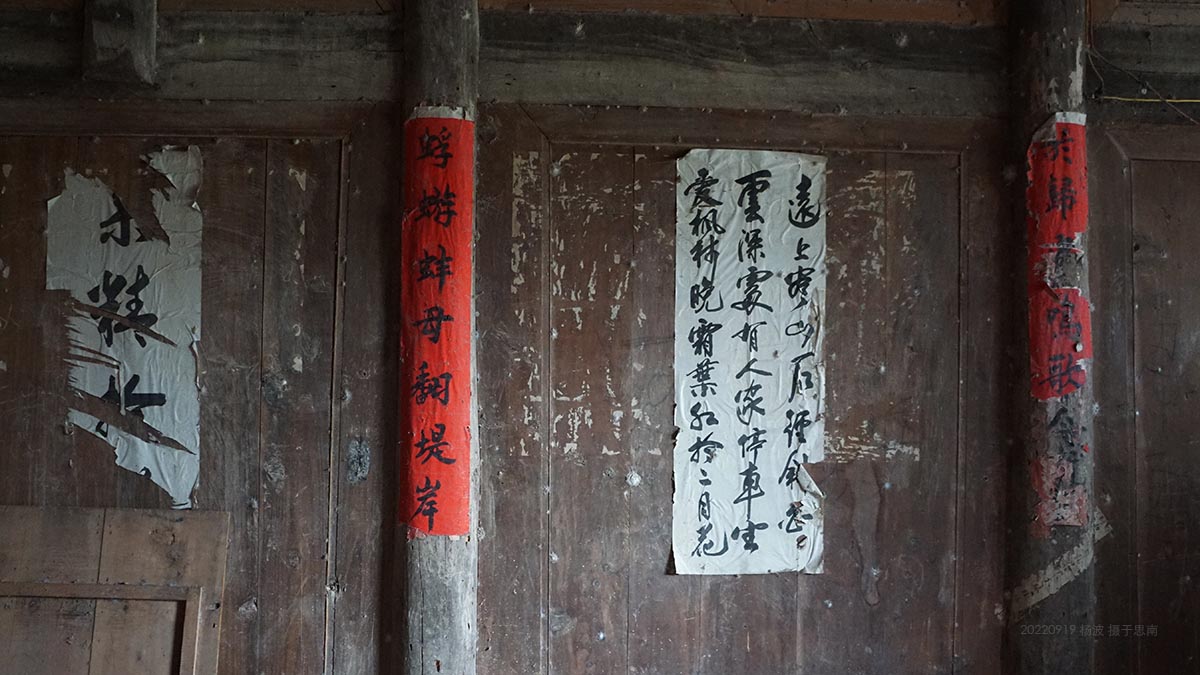 歸
鳴歌
遠上寒山石徑斜白
雲深處有人家停車坐
愛楓林晚霜葉紅於二月花
蜉蝣蚌母翻堤岸
精
20220919 杨波 摄于思南